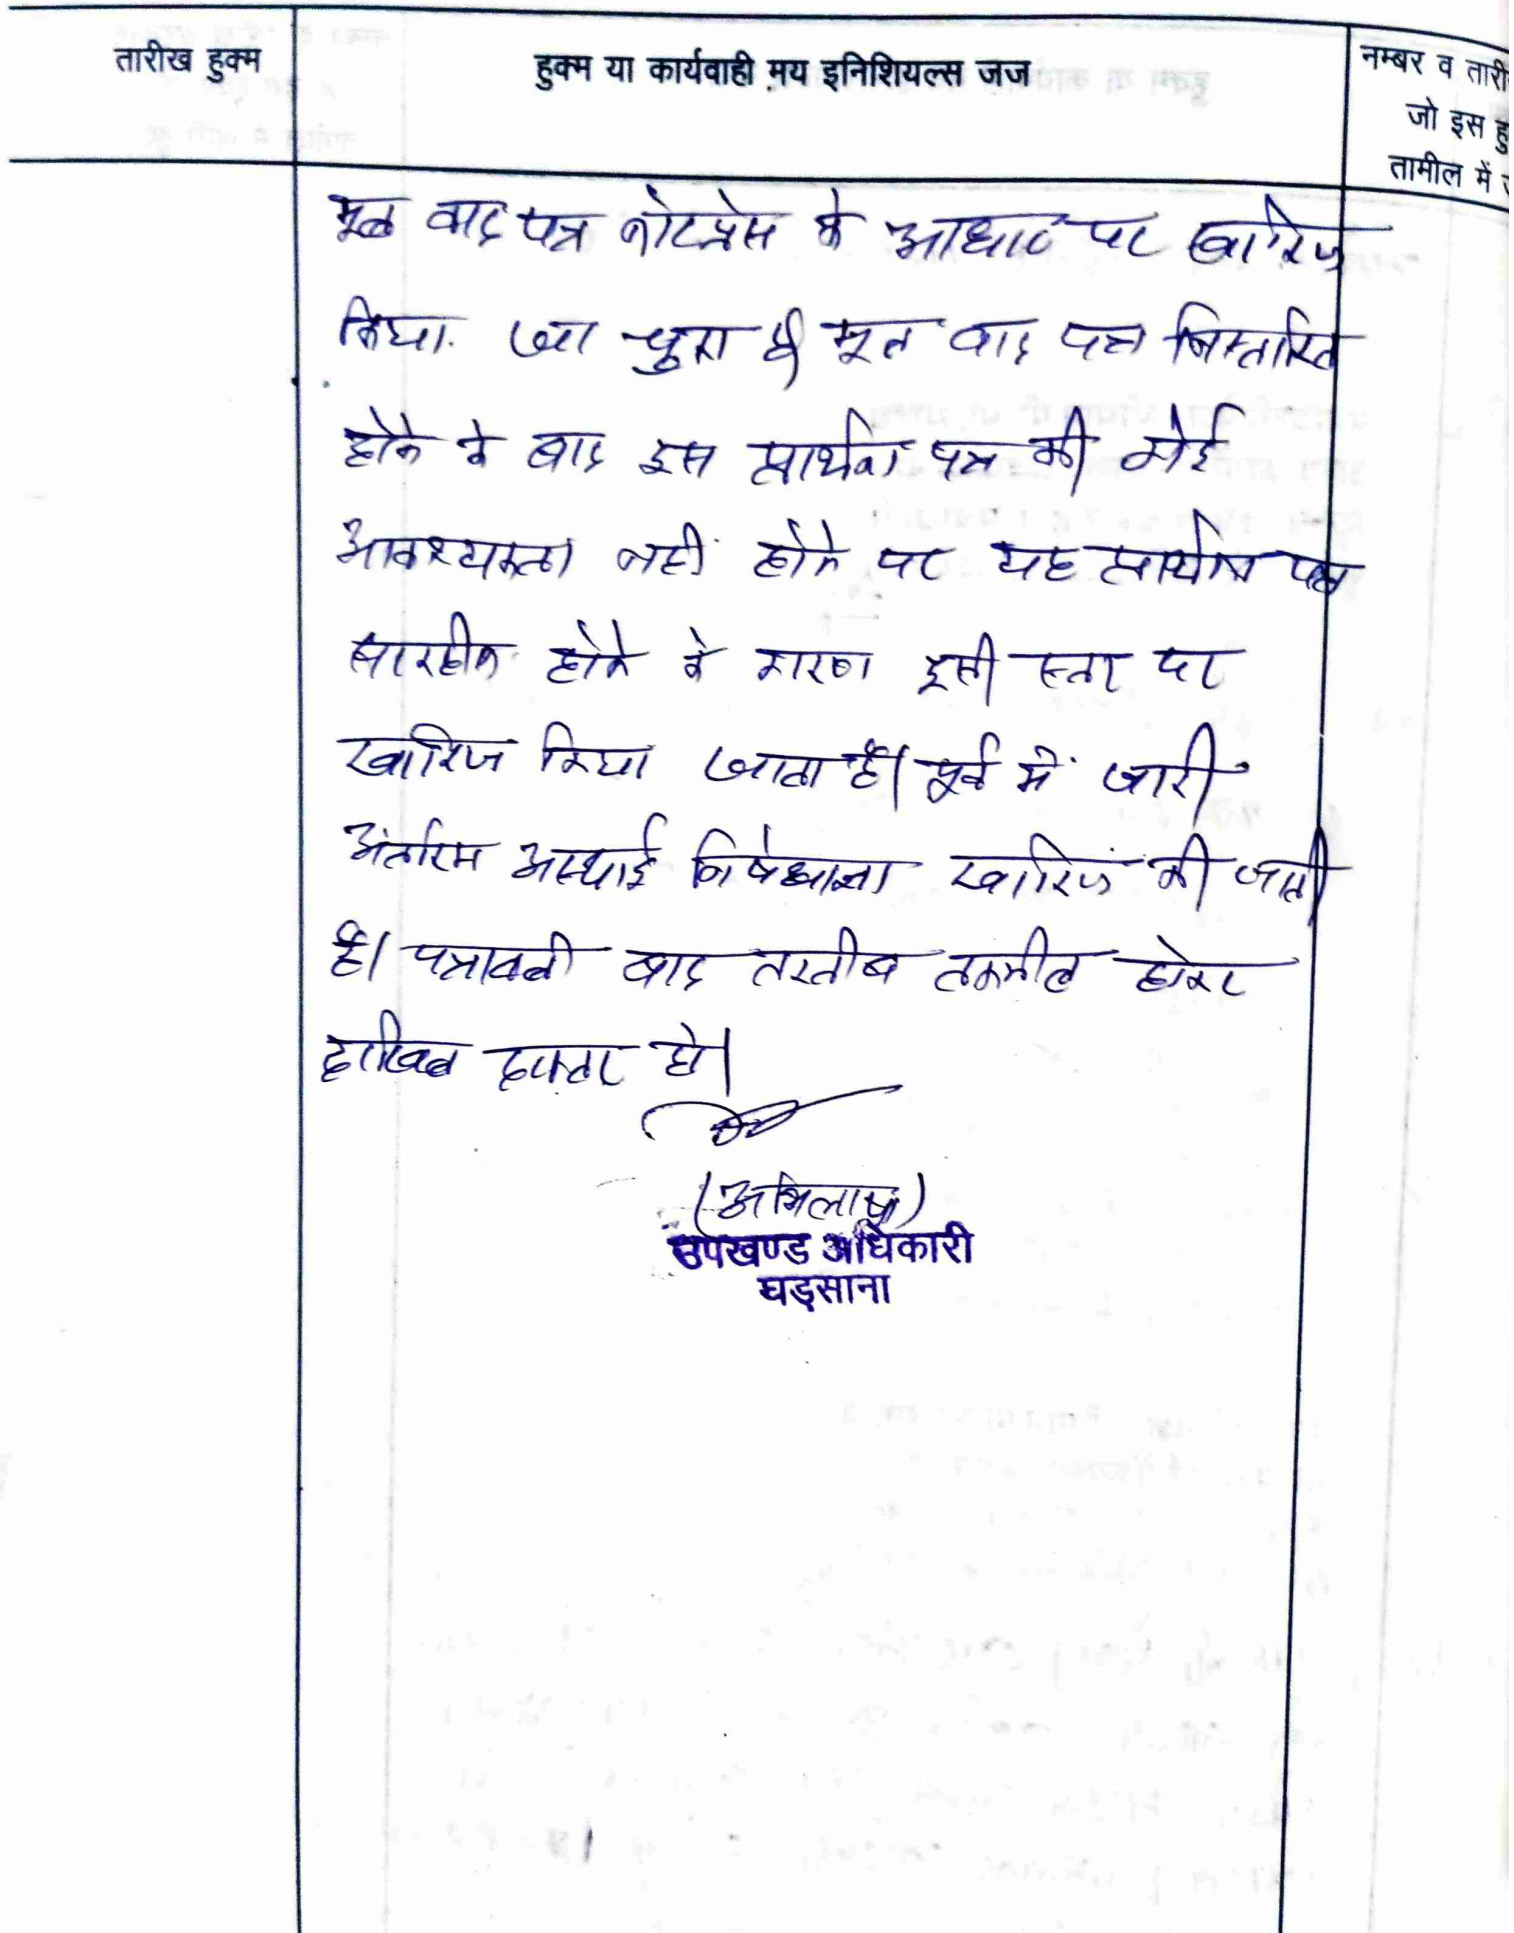 तारीख हुक्म
हुक्म या कार्यवाही मय इनिशियल्स जज
नम्बर व तारी
जो इस हु
तामील में
मूल वाद पत्र नोटप्रेस के आधार पर खारिज
किया जा चुका है मूल वाद पत्र निस्तारित
होने के बाद इस प्रार्थना पत्र की कोई
आवश्यकता नहीं होने पर यह प्रार्थना पत्र
सारहीन होने के कारण इसी स्तर पर
खारिज किया जाता है। पूर्व में जारी
अंतरिम अस्थाई निषेधाज्ञा खारिज की जाती
है। पत्रावली बाद तरतीब तकमील होकर
दाखिल दफ्तर हो।
(अभिलाषा)
उपखण्ड अधिकारी
घड़साना